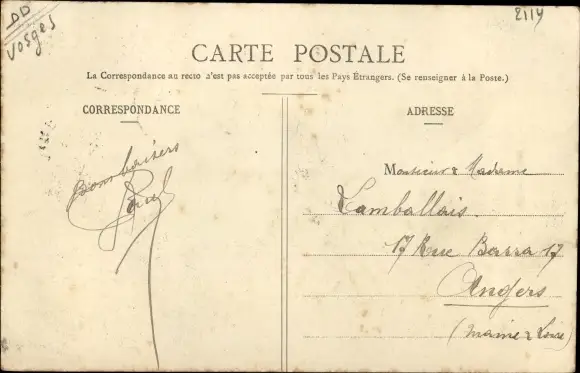 DD
Vosges
2114
CARTE POSTALE
La Correspondance au recto n'est pas acceptée par tous les Pays Étrangers. (Se renseigner à la Poste.)
CORRESPONDANCE
ADRESSE
Bons baisers
Paul
Monsieur & Madame
Lamballais.
17 Rue Barra 17
Angers
(Maine & Loire)